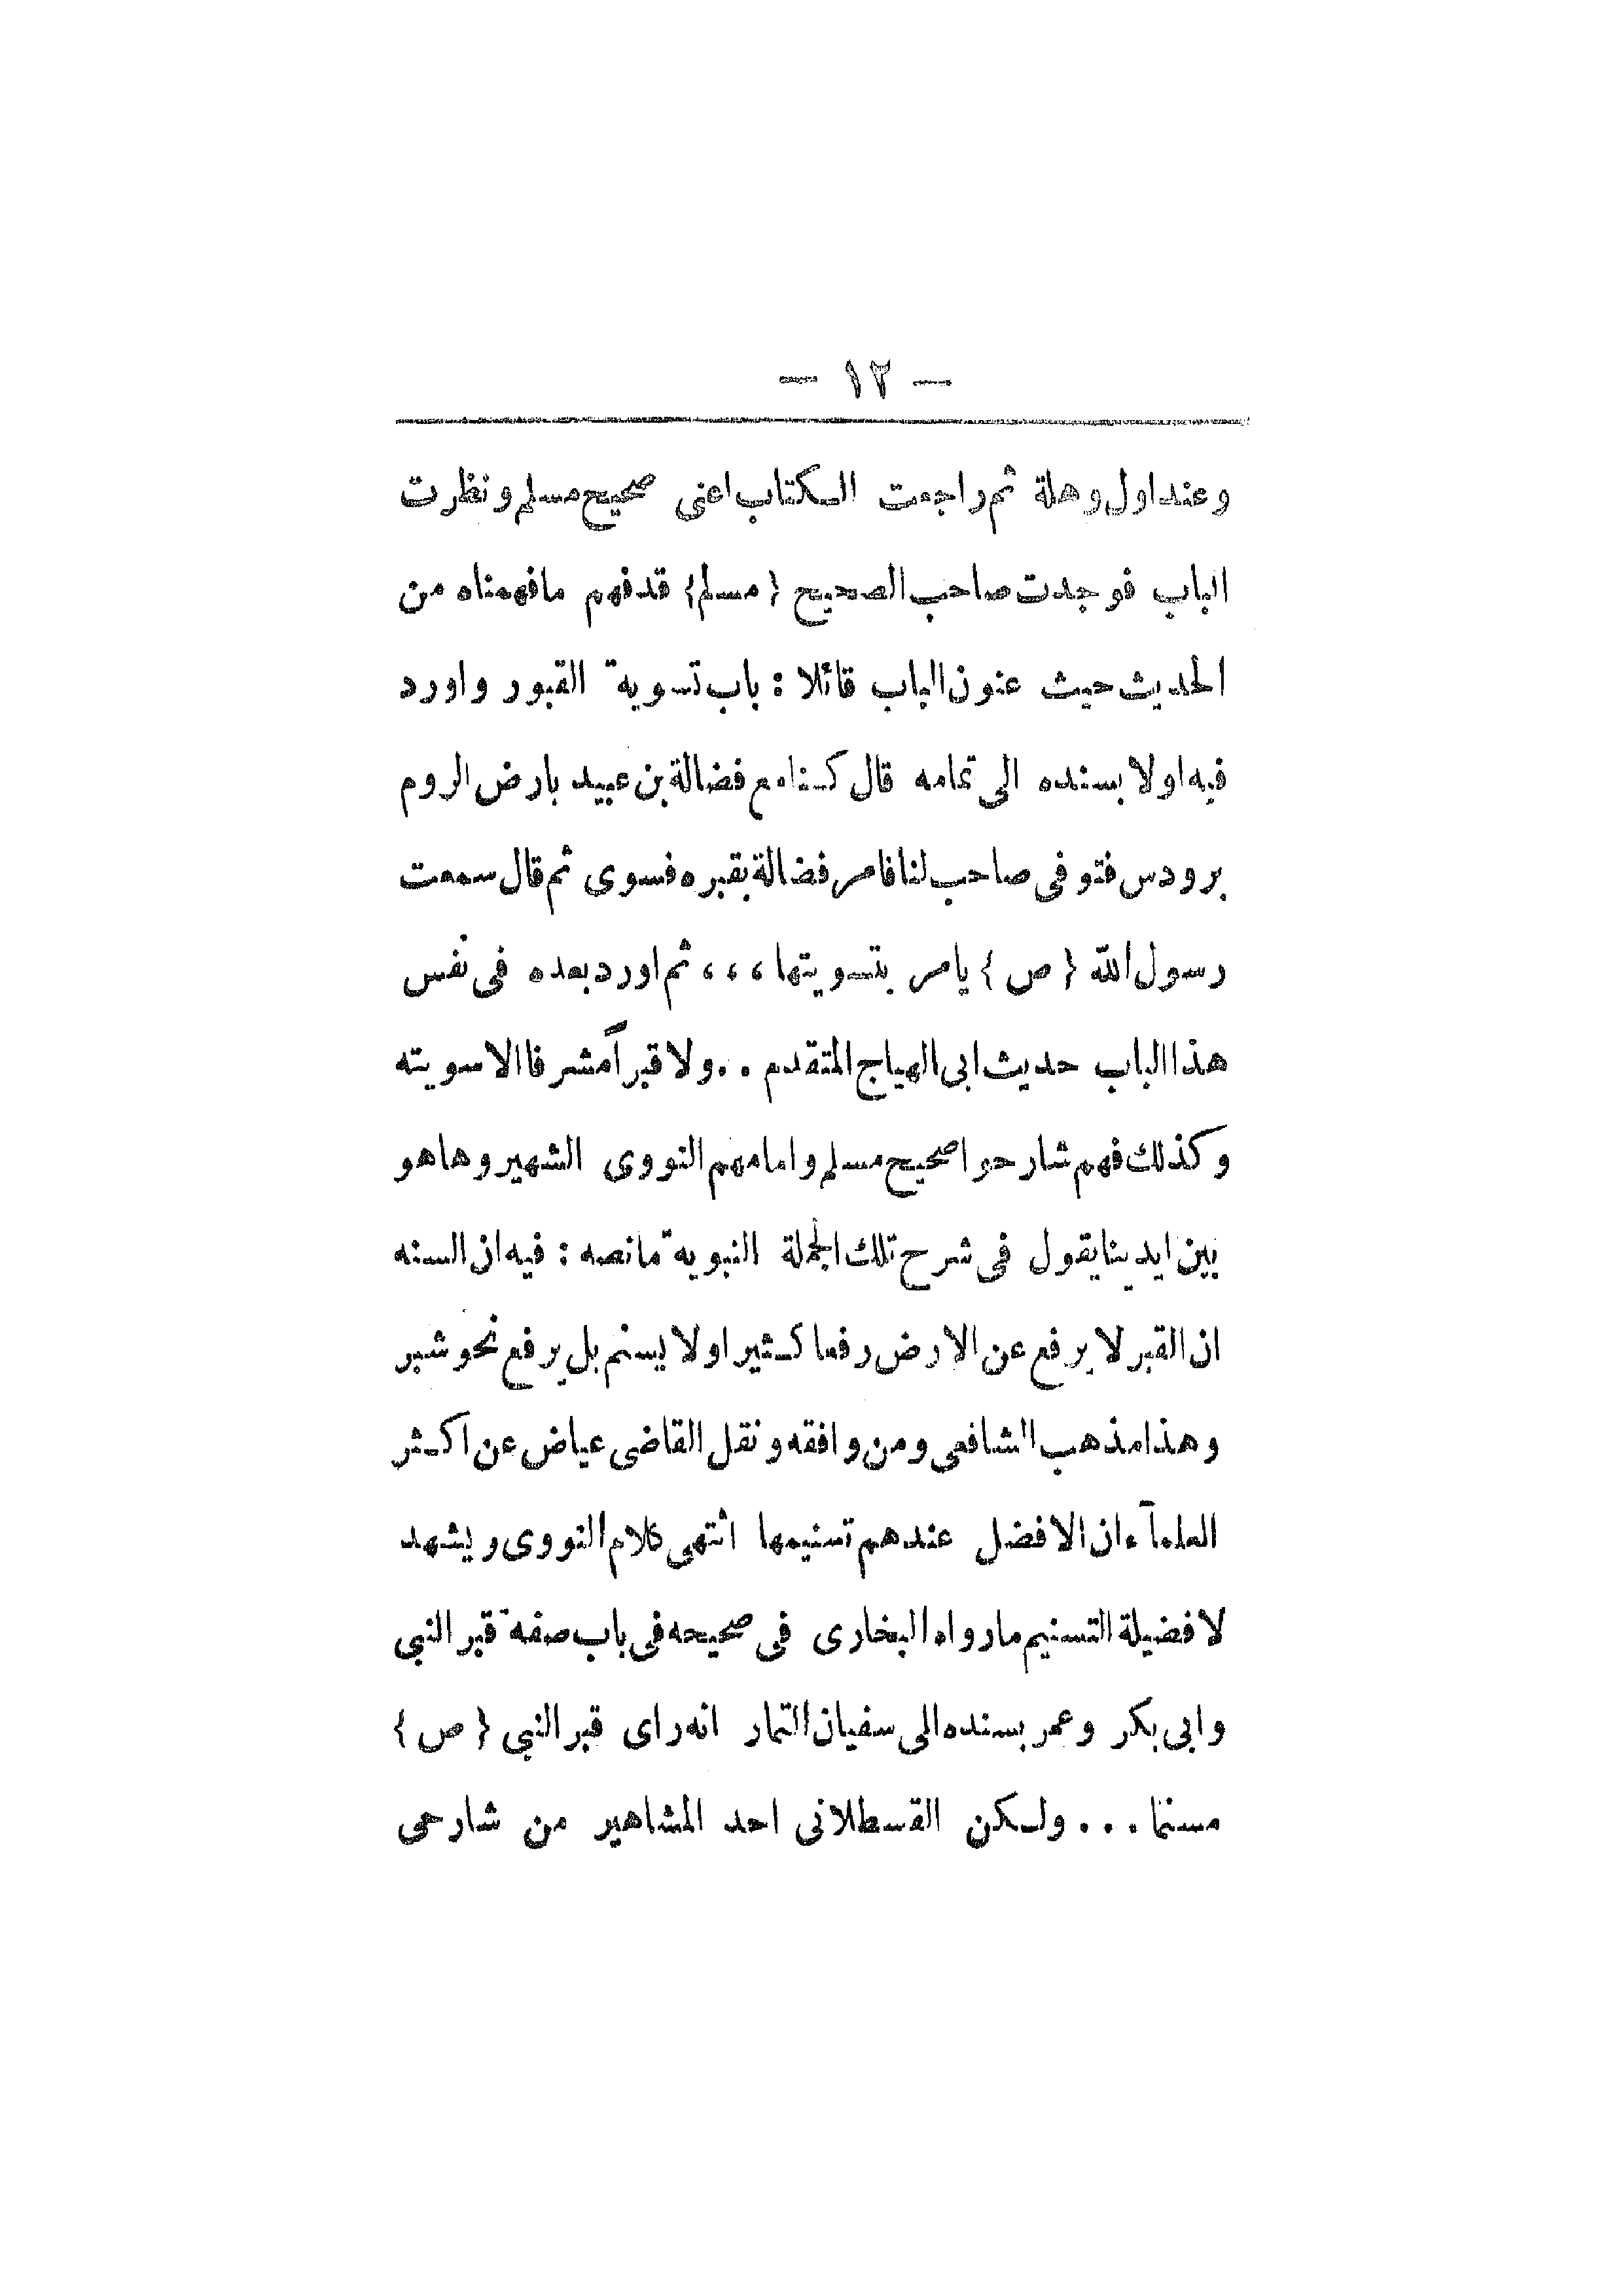 — ١٢ —
وعند اول وهلة ثم راجعت الكتاب اعنى صحيح مسلم ونظرت
الباب فوجدت صاحب الصحيح {مسلم} قد فهم ما فهمناه من
الحديث حيث عنون الباب قائلا : باب تسوية القبور واورد
فيه اولا بسنده الى تمامه قال كنا مع فضالة بن عبيد بارض الروم
برودس فتوفى صاحب لنا فامر فضالة بقبره فسوى ثم قال سمعت
رسول الله {ص} يامر بتسويتها ،،، ثم اورد بعده فى نفس
هذا الباب حديث ابى الهياج المتقدم . . ولا قبراً مشرفا الا سويته
وكذلك فهم شارحوا صحيح مسلم وامامهم النووى الشهير وها هو
بين ايدينا يقول فى شرح تلك الجملة النبوية ما نصه : فيه ان السنه
ان القبر لا يرفع عن الارض رفعا كثيرا ولا يسنم بل يرفع نحو شبر
وهذا مذهب الشافعى ومن وافقه ونقل القاضى عياض عن اكثر
العلمآء ان الافضل عندهم تسنيمها انتهى كلام النووى ويشهد
لافضيلة التسنيم مارواه البخارى فى صحيحه فى باب صفة قبر النبي
وابى بكر وعمر بسنده الى سفيان التمار انه راى قبر النبي {ص}
مسنما . . . ولكن القسطلانى احد المشاهير من شارحى